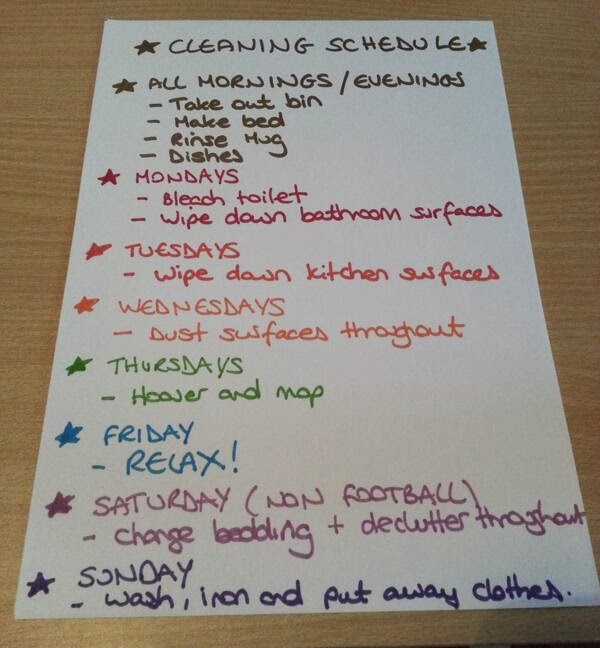 ★ CLEANING SCHEDULE★
★ ALL MORNINGS / EVENINGS
- Take out bin
- Make bed
- Rinse Mug
- Dishes
★ MONDAYS
- Bleach toilet
- Wipe down bathroom surfaces
★ TUESDAYS
- Wipe down kitchen surfaces
★ WEDNESDAYS
- Dust surfaces throughout
★ THURSDAYS
- Hoover and mop
★ FRIDAY
- RELAX!
★ SATURDAY (NON FOOTBALL)
- change bedding + declutter throughout
★ SUNDAY
- wash, iron and put away clothes.